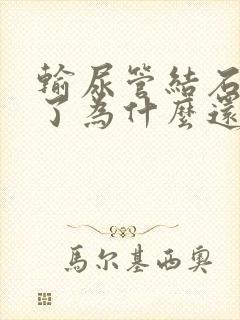 輸尿管結石
了為什麼還
馬尔基西奧